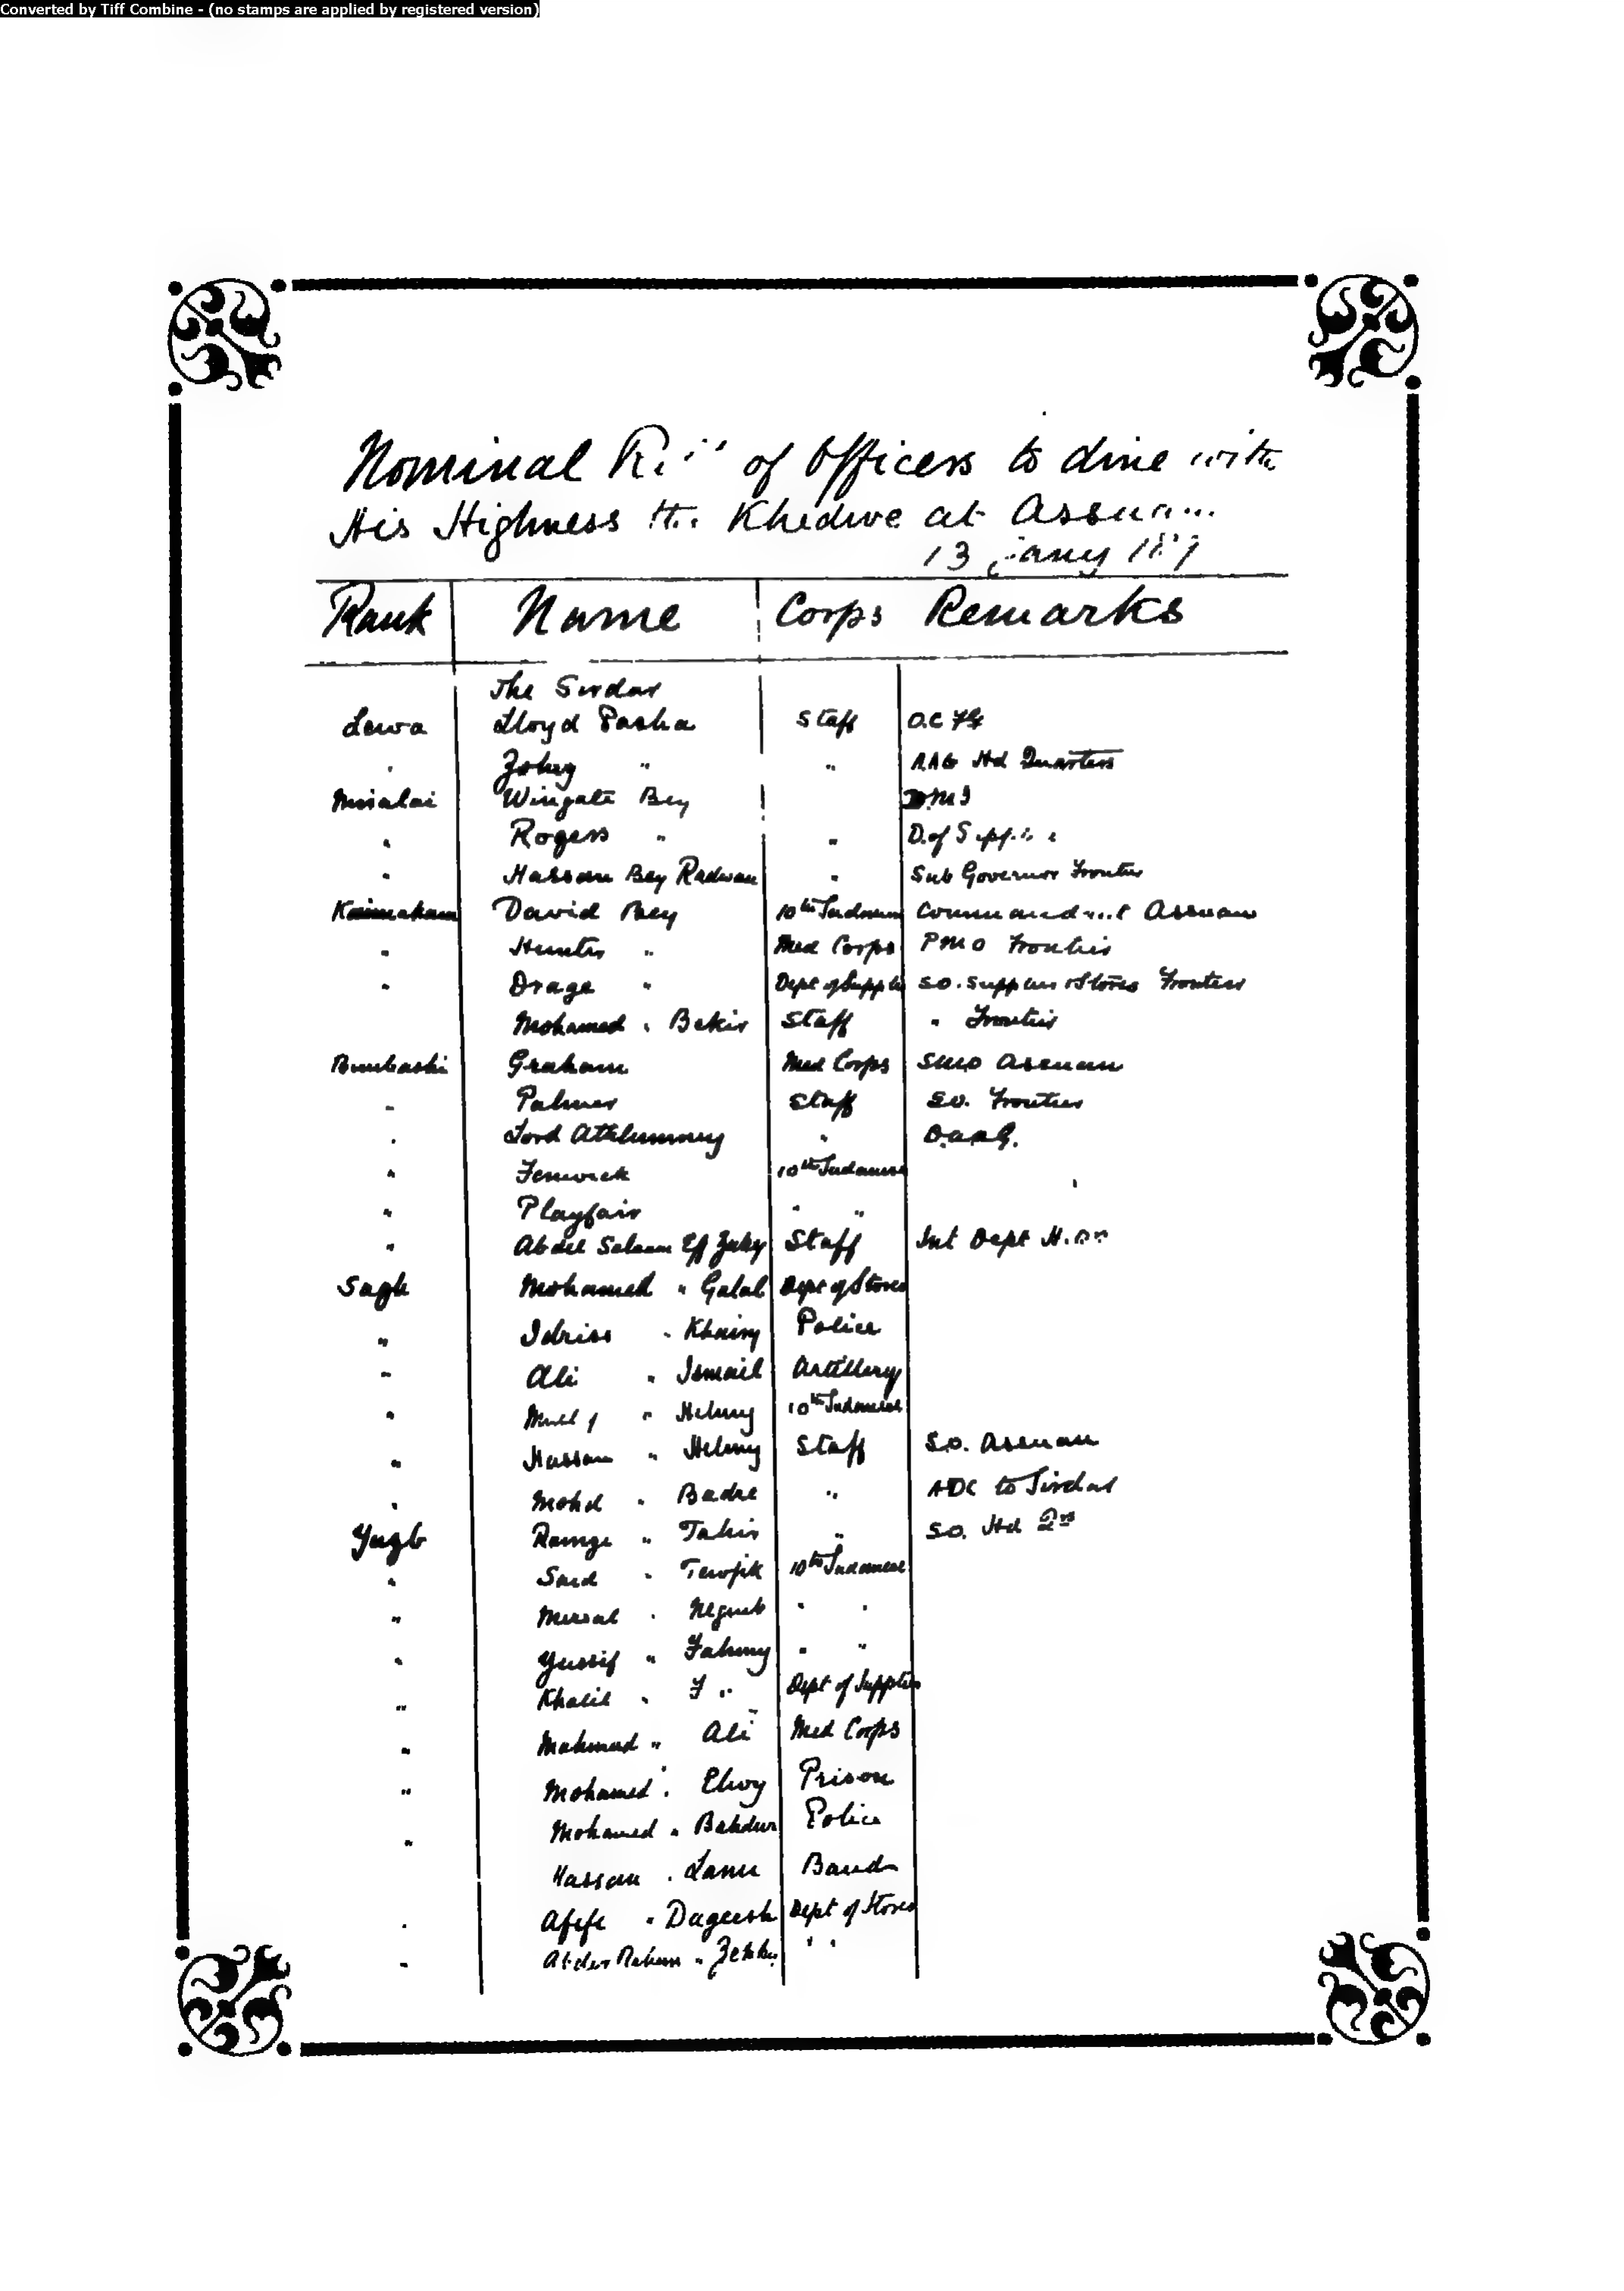 Converted by Tiff Combine - (no stamps are applied by registered version)
Nominal of Officers to dine with
His Highness the Khedive at
13 Jany
Rank Name Corps Remarks
The Sirdar
Lewa Lloyd Pasha Staff O.C.
" Zohny " " AAG Hd Quarters
Miralai Wingate Bey D.M.I
" Rogers " " D. of
" Hassan Bey Radwan " Sub Governor Frontier
Kaimakam David Bey 10th Sudanese Commandant Assuan
" Hunter " Med Corps PMO Frontier
" Drage " Dept of Supplies S.O. Supplies & Stores Frontier
Mohamed " Bekir Staff " Frontier
Bimbashi Graham Med Corps SMO Assuan
" Palmer Staff S.O. Frontier
" Lord Athlumney " D.A.A.G.
" Fenwick 10th Sudanese
" Playfair " "
" Abdel Salaam Eff Zaky Staff Int Dept
Sagh Mohamed " Galal Dept of Stores
" Idriss " Khairy Police
" Ali " Ismail Artillery
" " Helmy 10th Sudanese
" Hassan " Helmy Staff S.O. Assuan
" Mohd " Badre " ADC to Sirdar
Yuzb Ramze " Tahir " S.O. Hd Qrs
" Said " Tewfik 10th Sudanese
" Mursal " Neguib " "
" Yussif " Fahmy " "
" Khalil " Dept of Supplies
" Mahmud " Ali Med Corps
" Mohamed " Elwy Prison
" Mohamed " Police
Hassan " Band
" Afife " Dept of Stores
" " " "